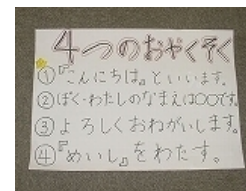 4つのおやくそく
①『こんにちは』といいます。
②ぼく・わたしのなまえは○○です。
③よろしくおねがいします。
④『めいし』をわたす。